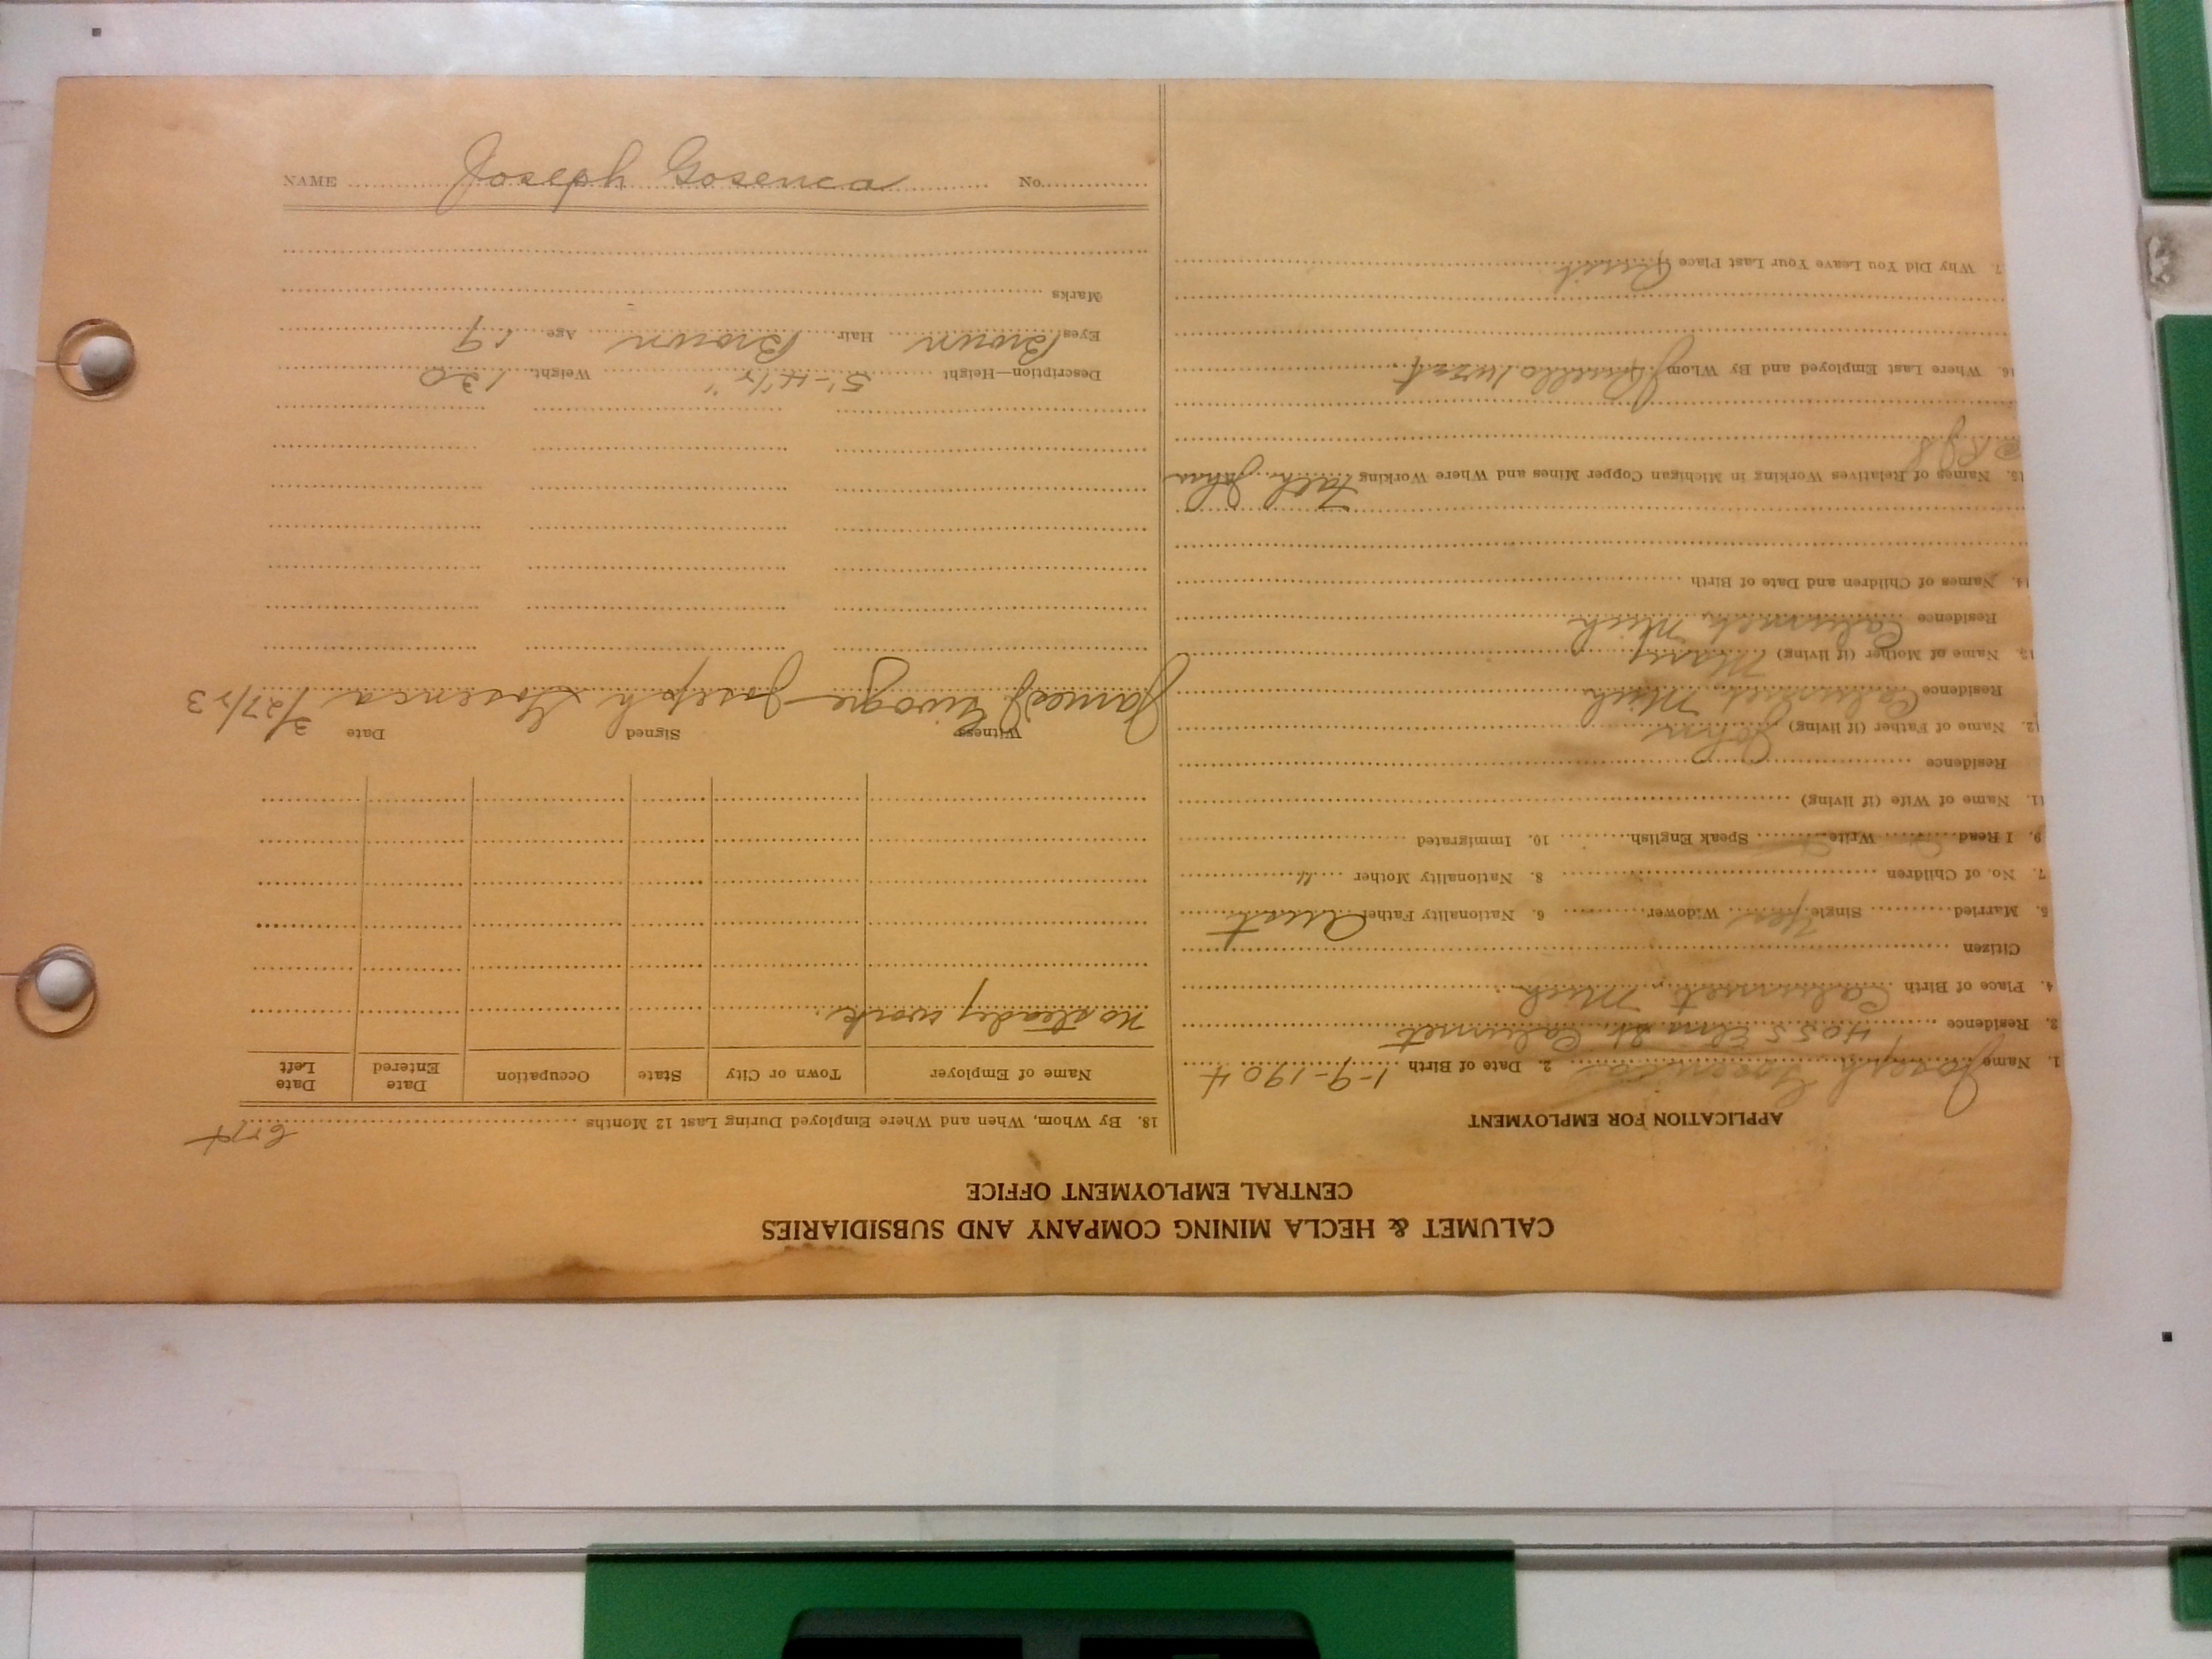 CALUMET & HECLA MINING COMPANY AND SUBSIDIARIES
CENTRAL EMPLOYMENT OFFICE
APPLICATION FOR EMPLOYMENT
1. Name Joseph Gosenca 2. Date of Birth 1-9-1904
3. Residence 4055 Elm St. Calumet
4. Place of Birth Calumet, Mich
Citizen
5. Married Single yes Widower 6. Nationality Father Aust
7. No. of Children 8. Nationality Mother "
9. I Read Write Speak English 10. Immigrated
11. Name of Wife (if living)
Residence
12. Name of Father (if living) John
Residence Calumet, Mich
13. Name of Mother (if living) Mary
Residence Calumet, Mich
14. Names of Children and Date of Birth
15. Names of Relatives Working in Michigan Copper Mines and Where Working Fath. John
16. Where Last Employed and By Whom
7. Why Did You Leave Your Last Place Quit
18. By Whom, When and Where Employed During Last 12 Months
Name of Employer Town or City State Occupation Date Entered Date Left
No steady work.
Witness Signed Date
James Joseph Gosenca 3/27/23
Description—Height 5'-4 1/2" Weight 130
Eyes Brown Hair Brown Age 19
Marks
NAME Joseph Gosenca No.